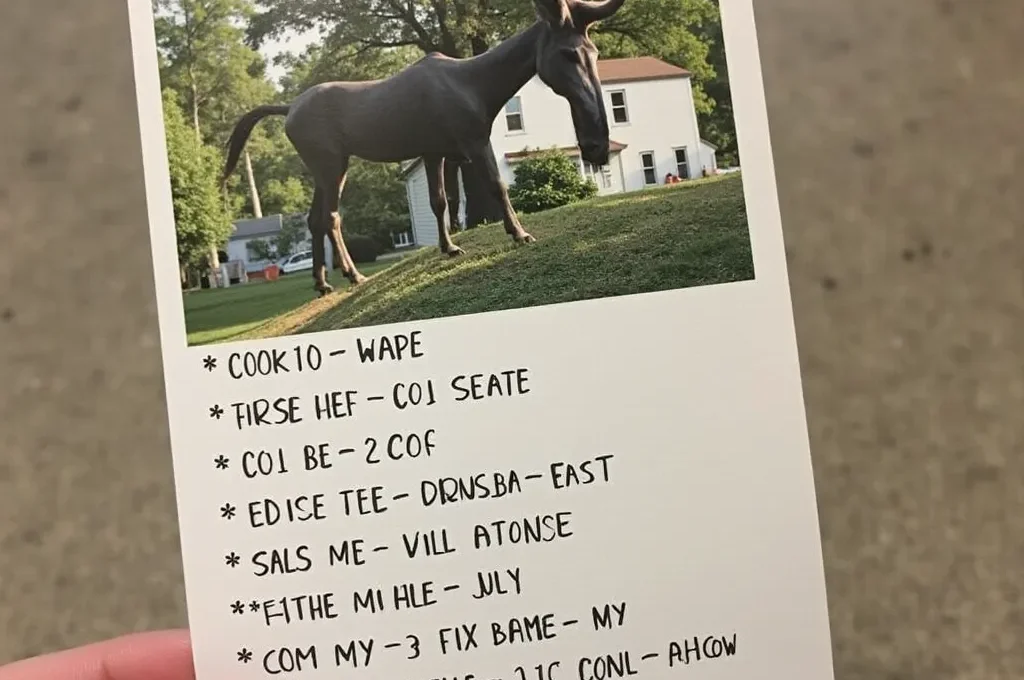 * COOK10 - WAPE
* TIRSE HEF - CO1 SEATE
* CO1 BE - 2 COF
* EDISE TEE - DRNSBA - EAST
* SALS ME - VILL ATONSE
**F1THE MI HLE - JULY
* COM MY - 3 FIX BAME - MY
CONL - AHCOW